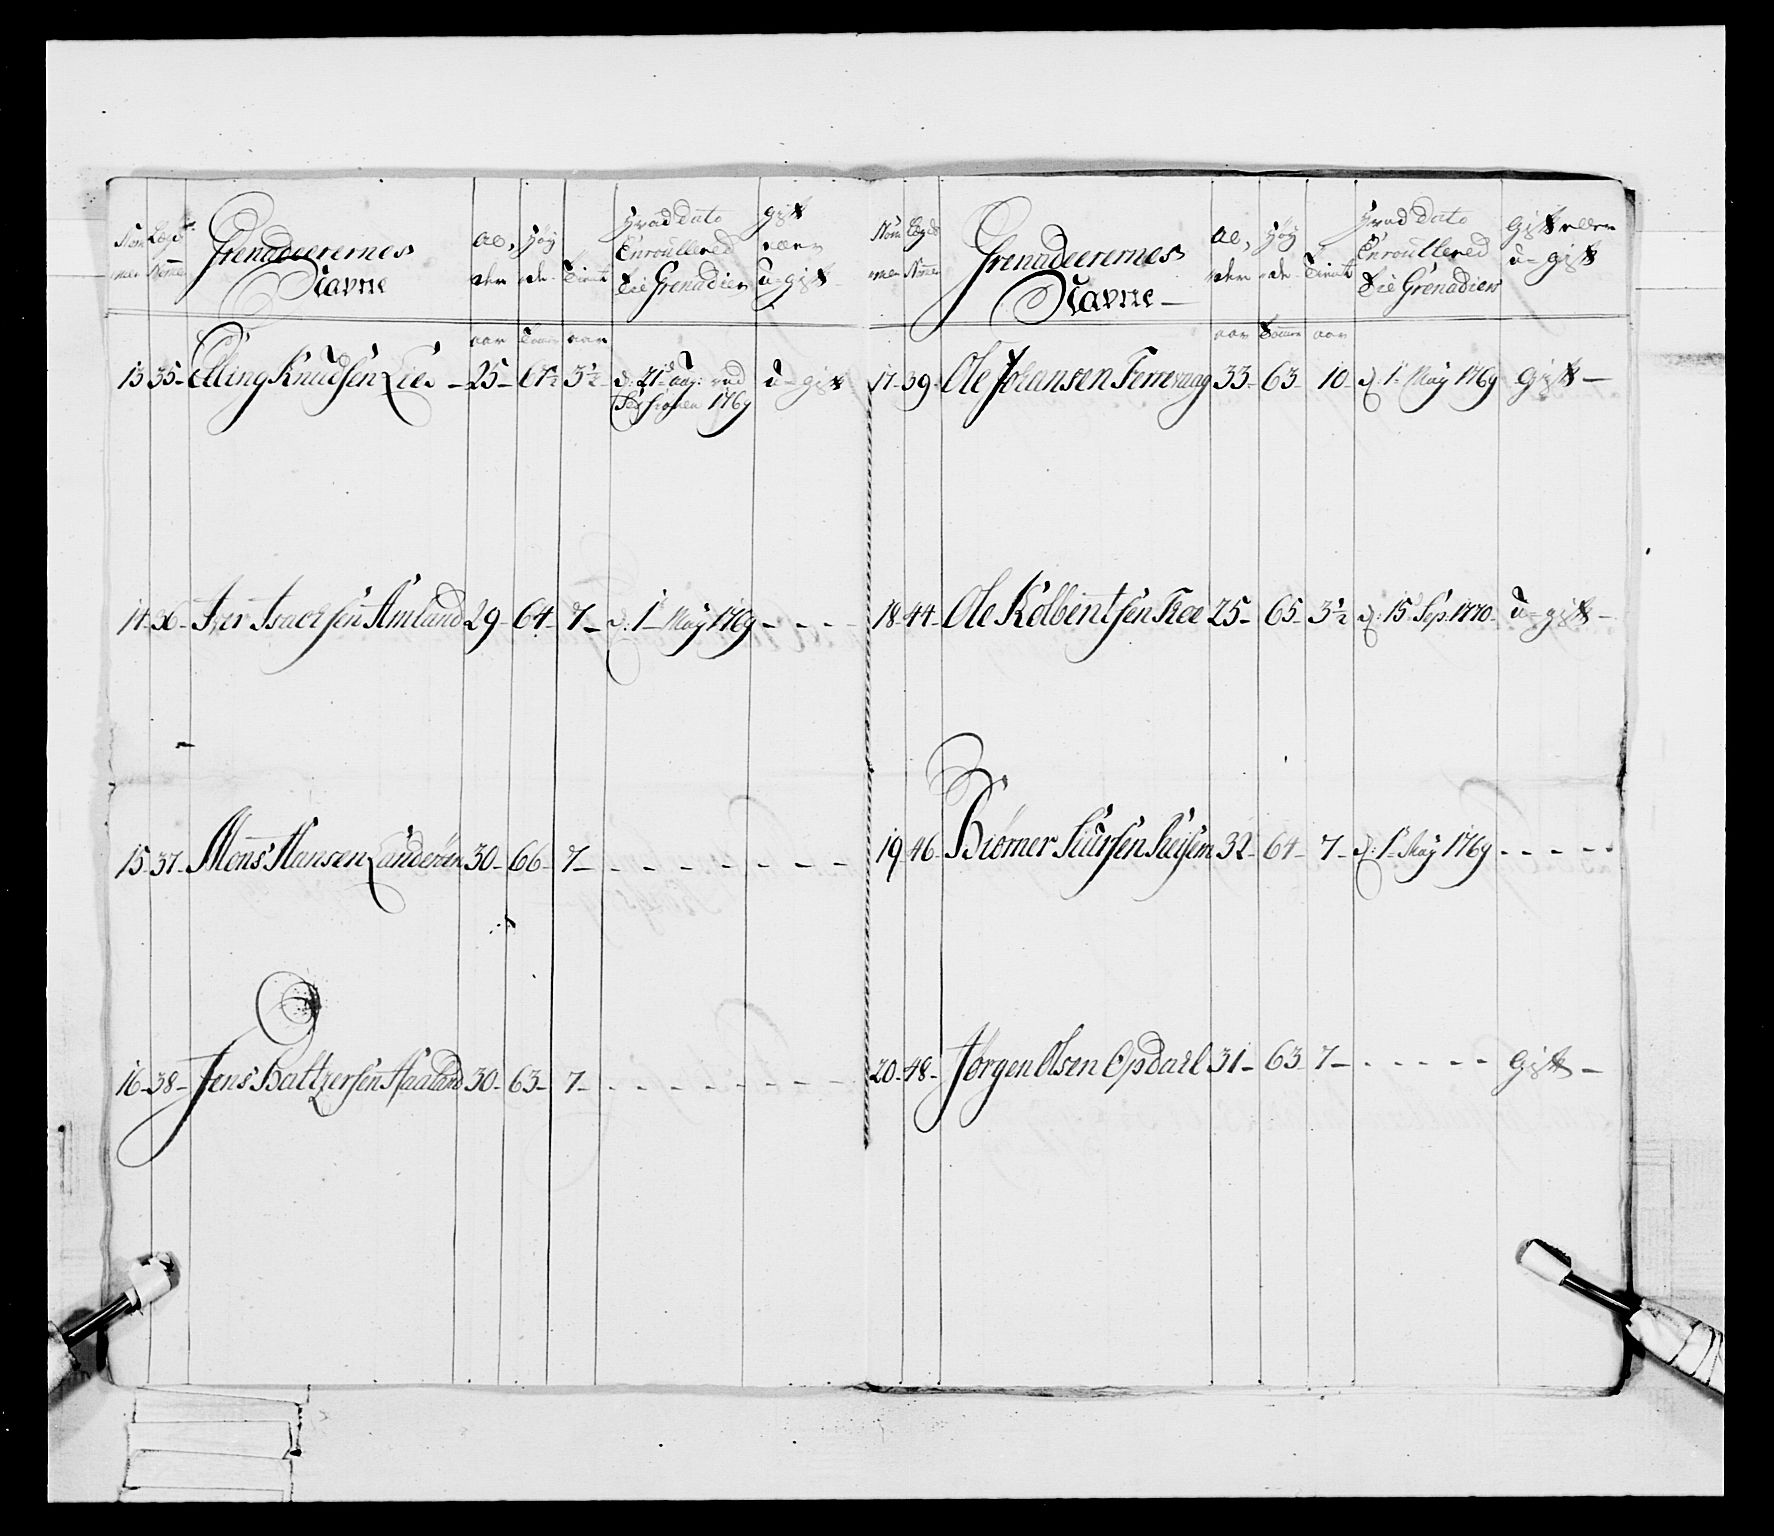 Nom
mer
Lægds
Nõme
Grenadeerernes
Navne
al,
der
Høy
de
Tient
Hvad Dato
Enroullered
til Grenadier
gift
eller
u-gift
aar Tomer aar
13 35 Elling Knudsen Lie 25 3½ d. 21 Aug: ved
1769 u-gift
14 36 Iver Isaachsen Amland 29 64 7 d: 1 May 1769 - - - -
15 37 Mons Hansen Landeröen 30 66 7 - - - - - - -
16 38 Jens Baltzersen Haaland 30 63 7 - - - - - - -
Nom
mer
Lægds
Nõmer
Grenadeerernes
Navne
al,
der
Høy
de
Tient
Hvad Dato
Enroullered
til Grenadier
Gift eller
u-gift
aar Tomer aar
17 39 Ole Johansen Ferrevaag 33 63 10 d. 1 May 1769 Gift
18 44 Ole Kolbentsen Tree 25 65 3½ d: 15 Sep. 1770 u-gift
19 46 Biørner Siursen 32 64 7 d: 1 May 1769 - - - - -
20 48 Jørgen Olsen Opdall 31 63 7 - - - - - Gift